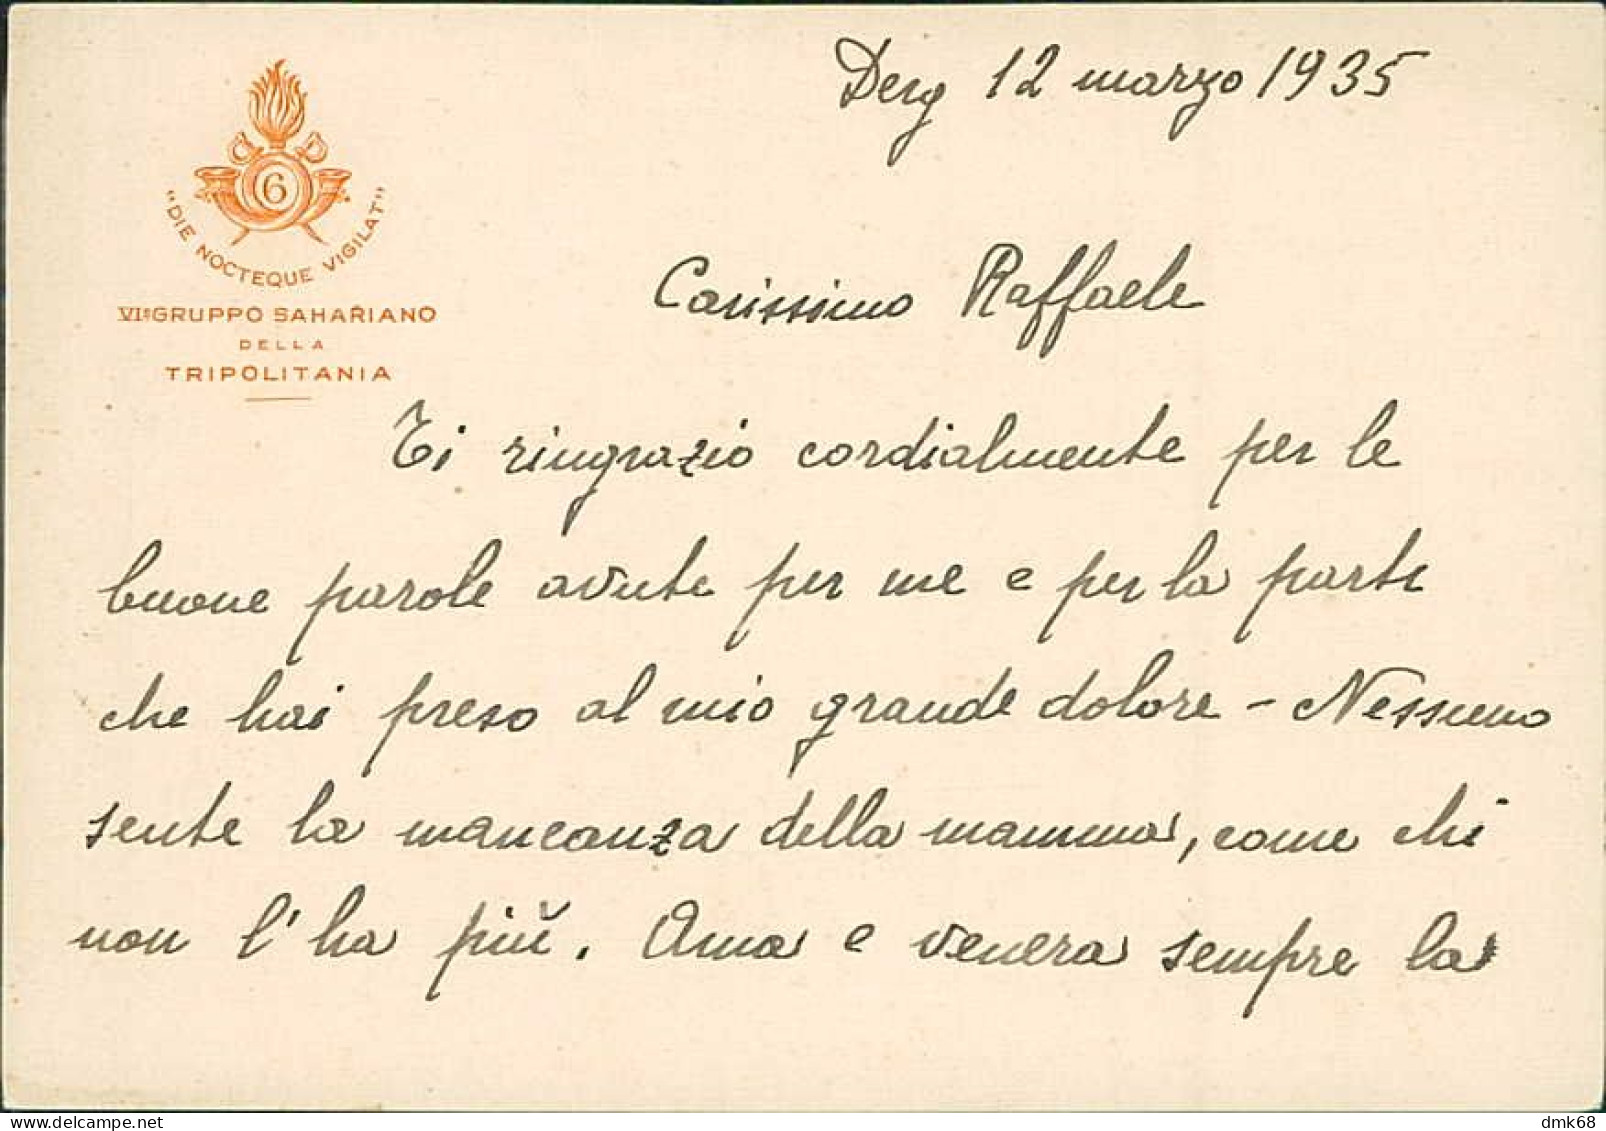 Derg 12 marzo 1935
6
"DIE NOCTEQUE VIGILAT"
VIº GRUPPO SAHARIANO
DELLA
TRIPOLITANIA
Carissimo Raffaele
Ti ringrazio cordialmente per le
buone parole avute per me e per la parte
che hai preso al mio grande dolore - Nessuno
sente la mancanza della mamma, come chi
non l'ha più. Ama e venera sempre la
delcampe.net
dmk68